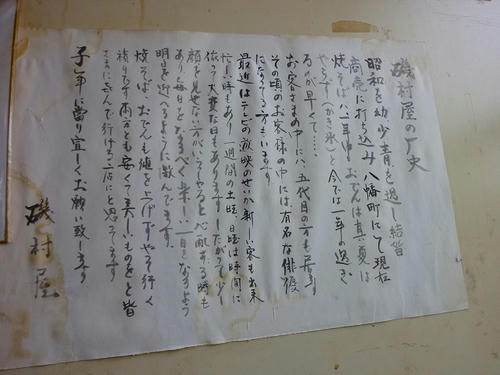 磯村屋の歴史
昭和を幼少青を過し結婚
商売に打ち込み八幡町にて現在
焼そば八二年中おでんは真夏は
やらず(かき氷)と今では一年の過ぎ
るのが早くて……
お客さまの中に八、五代目の方も居ます
その頃のお客様の中には有名な俳優
になってる方もいます
最近はテレビの放映のせいか新しい客も出来
忙しい時もあり一週間の土曜日曜は時間に
依って大変な日もあります したがって少し
顔を見せない方がどうしてると心配する時も
あり毎日をなるべく楽しい一日となるよう
明日を迎へるように励んでます
焼そば、おでんも値を上げずやって行く
積りです 両方も安くて美しいものをと皆
さまに喜んで行ける店にと思ってます
子年に当り宜しくお願い致します
磯村屋